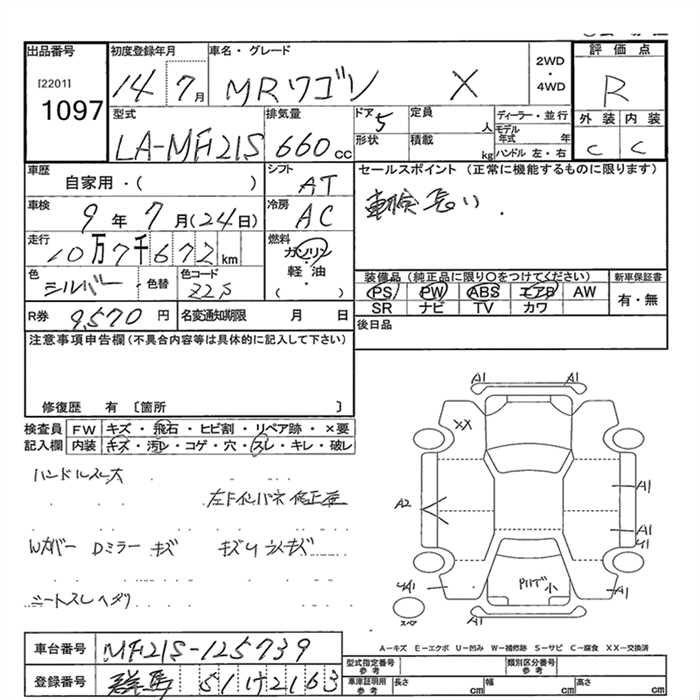 出品番号 初度登録年月 車名・グレード 2WD・4WD 評価点
[2201] 1097 14年 7月 MRワゴン X R
型式 排気量 ドア 5 定員 人 ディーラー・並行 外装 内装
LA-MF21S 660cc 形状 積載 kg モデル年式 年 ハンドル 左・右 C C
車歴 自家用・( ) シフト AT セールスポイント (正常に機能するものに限ります)
車検 9年 7月 (24日) 冷房 AC 車検長い.
走行 10万7千672km 燃料 ガソリン・軽油・( )
色 シルバー・色替 色コード Z2S 装備品 (純正品に限り〇をつけてください) 新車保証書
PS PW ABS エアB AW 有・無
SR ナビ TV カワ
R券 9,570円 名変通知期限 月 日 後日品
注意事項申告欄 (不具合内容等は具体的に記入して下さい)
修復歴 有 〔箇所 〕
検査員記入欄 FW キズ・飛石・ヒビ割・リペア跡・×要
内装 キズ・汚レ・コゲ・穴・スレ・キレ・破レ
ハンドルスレ大
左Fインパネ修正歴
Wカバー Dミラー キズ キズ U
シートスレ ヘタリ
A1
XX
A1
A2
A1
A1
U1
UA1
A1
A1
A-キズ E-エクボ U-凹み W-補修跡 S-サビ C-腐食 XX-交換済
車台番号 MF21S-125739
登録番号 群馬 51 け 2163
型式指定番号参考 類別区分番号参考
車庫証明用参考 長さ cm 幅 cm 高さ cm